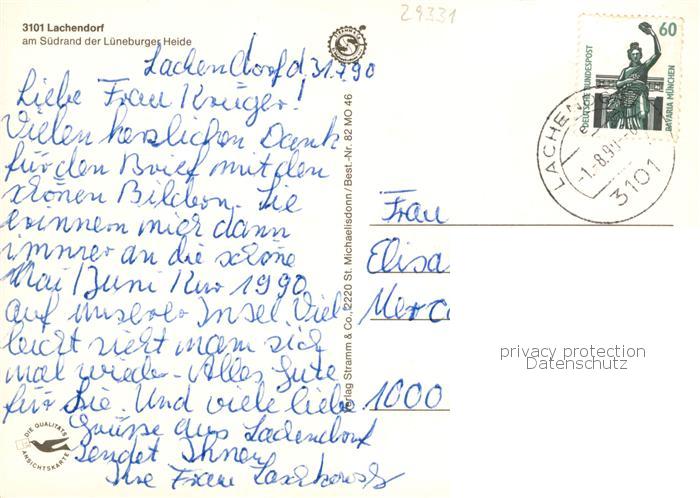 29331
3101 Lachendorf
am Südrand der Lüneburger Heide
Lachendorf d. 31.7.90
Liebe Frau Krüger!
Vielen herzlichen Dank
für den Brief mit den
schönen Bildern. Sie
erinnern mich dann
immer an die schöne
Mai/Juni Kur 1990
auf unserer Insel. Viel
leicht sieht mam sich
mal wieder. Alles Gute
für Sie. Und viele liebe
Grüsse aus Lachendorf
sendet Ihnen
Ihre Frau
DIE QUALITÄTS
ANSICHTSKARTE
Verlag Stramm & Co., 2220 St. Michaelisdonn/Best.-Nr. 82 MO 46
60
DEUTSCHE BUNDESPOST
BAVARIA MÜNCHEN
LACHEN
-1.-8.90
3101
Frau
Elisa
Merc
1000
privacy protection
Datenschutz